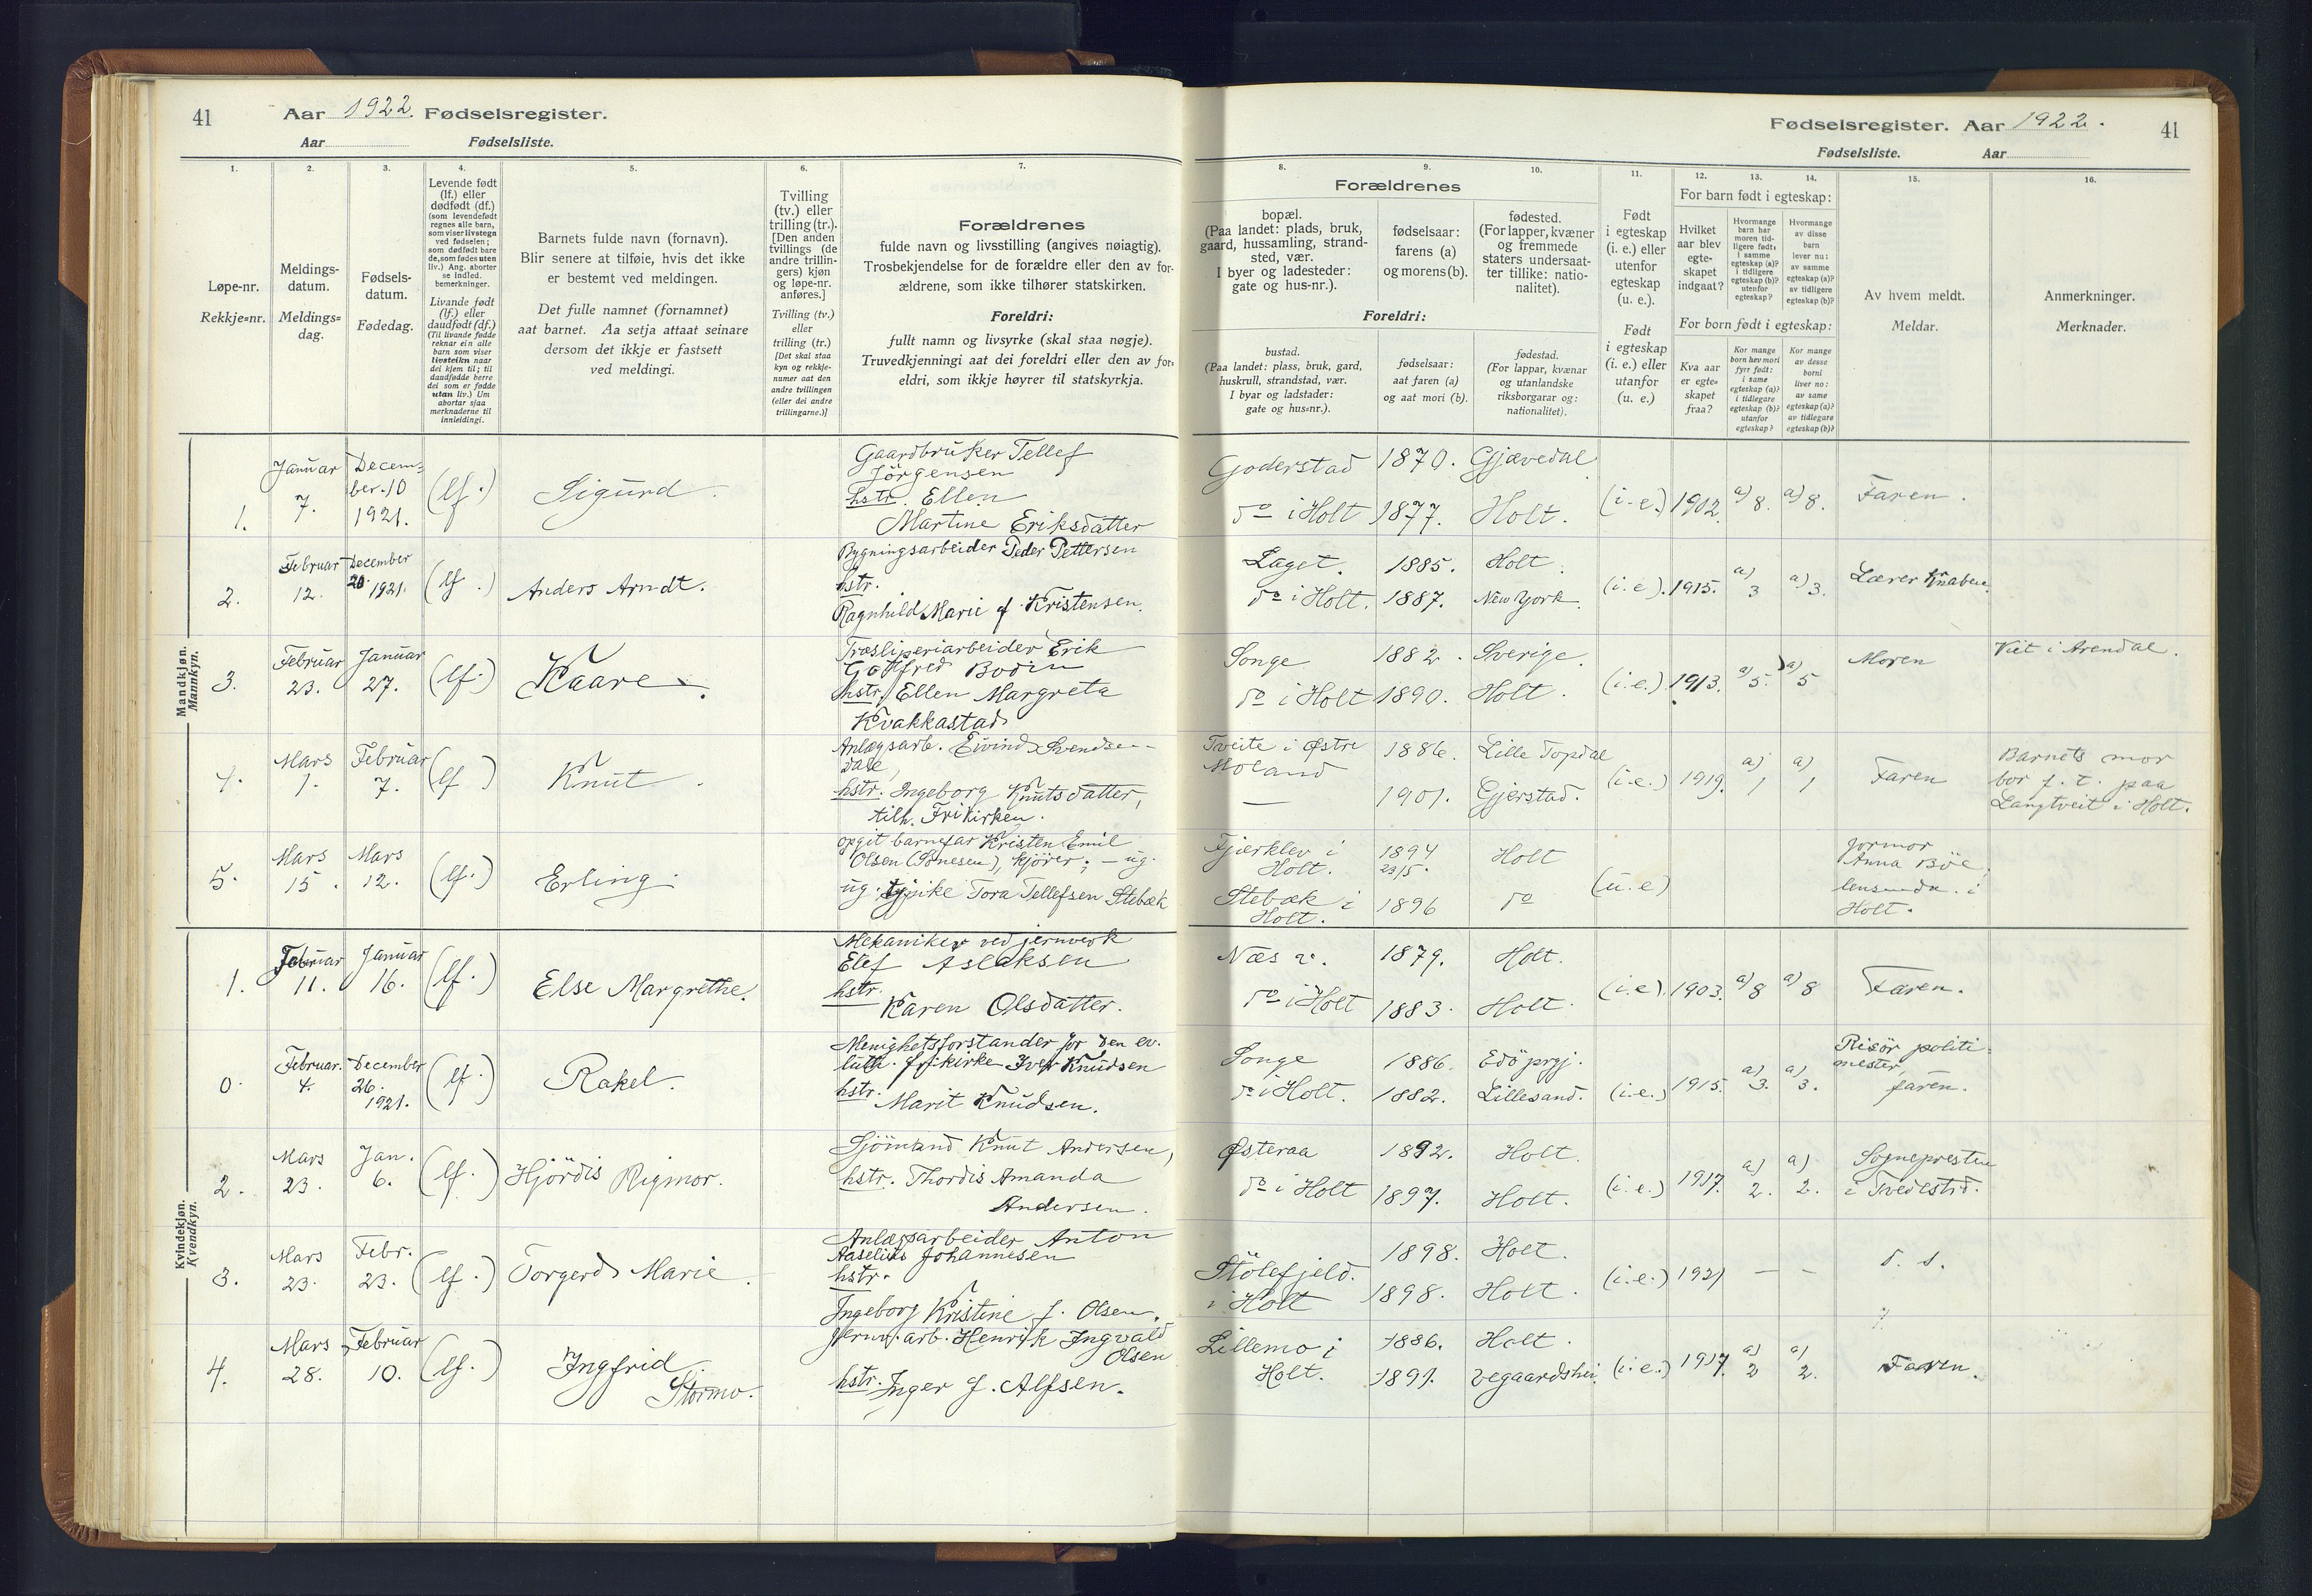 41
Aar 1922. Fødselsregister.
Aar
Fødselsliste.
1.
Løpe-nr.
Rekkje=nr.
2.
Meldings-
datum.
Meldings=
dag.
3.
Fødsels-
datum.
Fødedag.
4.
Levende født
(lf.) eller
dødfødt (df.)
(som levendefødt
regnes alle barn,
som viser livstegn
ved fødselen;
som dødfødt bare
de, som fødes uten
liv.) Ang. aborter
se indled.
bemerkninger.
Livande født
(lf.) eller
daudfødt (df.)
(Til livande fødde
reknar ein alle
barn som viser
livsteikn naar
dei kjem til; til
daudfødde berre
dei som er fødde
utan liv.) Um
abortar sjaa
merknaderne til
innleidingi.
5.
Barnets fulde navn (fornavn).
Blir senere at tilføie, hvis det ikke
er bestemt ved meldingen.
Det fulle namnet (fornamnet)
aat barnet. Aa setja attaat seinare
dersom det ikkje er fastsett
ved meldingi.
6.
Tvilling
(tv.) eller
trilling (tr.).
[Den anden
tvillings (de
andre trillin-
gers) kjøn
og løpe-nr.
anføres.]
Tvilling (tv.)
eller
trilling (tr.)
[Det skal staa
kyn og rekkje-
numer aat den
andre tvillingen
(eller dei andre
trillingarne.)]
7.
Forældrenes
fulde navn og livsstilling (angives nøiagtig).
Trosbekjendelse for de forældre eller den av for-
ældrene, som ikke tilhører statskirken.
Foreldri:
fullt namn og livsyrke (skal staa nøgje).
Truvedkjenningi aat dei foreldri eller den av for-
eldri, som ikkje høyrer til statskyrkja.
Fødselsregister. Aar 1922.
41
Fødselsliste.
Aar
8.
Forældrenes
bopæl.
(Paa landet: plads, bruk,
gaard, hussamling, strand-
sted, vær.
I byer og ladesteder:
gate og hus-nr.).
Foreldri:
bustad.
(Paa landet: plass, bruk, gard,
huskrull, strandstad, vær.
I byar og ladstader:
gate og hus=nr.).
9.
fødselsaar:
farens (a)
og morens (b).
fødselsaar:
aat faren (a)
og aat mori (b).
10.
fødested.
(For lapper, kvæner
og fremmede
staters undersaat-
ter tillike: natio-
nalitet).
fødestad.
(For lappar, kvænar
og utanlandske
riksborgarar og:
nationalitet).
11.
Født
i egteskap
(i. e.) eller
utenfor
egteskap
(u. e.).
Født
i egteskap
(i. e.) eller
utanfor
(u. e.)
12.
For barn født i egteskap:
Hvilket
aar blev
egte-
skapet
indgaat?
For born født i egteskap:
Kva aar
er egte=
skapet
fraa?
13.
Hvormange
barn har
moren tid-
ligere født:
i samme
egteskap (a)?
i tidligere
egteskap (b)?
utenfor
egteskap?
Kor mange
born hev mori
fyrr født:
i same
egteskap (a)?
i tidlegare
egteskap (b)?
utanfor
egteskap?
14.
Hvormange
av disse
barn
lever nu:
av samme
egteskap (a)?
av tidligere
egteskap (b)?
Kor mange
av desse
borni
liver no:
av same
egteskap (a)?
av tidlegare
egteskap (b)?
15.
Av hvem meldt.
Meldar.
16.
Anmerkninger.
Merknader.
Mandkjøn.
Mannkyn.
1.
Januar
7.
Decem-
ber. 10
1921.
(lf.)
Sigurd.
Gaardbruker Tellef
Jörgensen
hstr. Ellen
Martine Eriksdatter
Goderstad
do i Holt
1870.
1877.
Gjævedal
Holt.
(i. e.)
1902.
a) 8.
a) 8.
Faren.
2.
Februar
12.
December
20. 1921.
(lf.)
Anders Arndt.
Bygningsarbeider Peder Pettersen
hstr.
Ragnhild Marie f. Kristensen.
Laget.
do i Holt.
1885.
1887.
Holt.
New York.
(i. e.)
1915.
a) 3
a) 3.
Lærer Knaben.
3.
Februar
23.
Januar
27.
(lf.)
Kaare.
Træsliperiarbeider Erik
Gotfred Bodin
hstr. Ellen Margreta
Kvakkestad
Songe
do i Holt
1882.
1890.
Sverige.
Holt.
(i. e.)
1913.
a) 5.
a) 5
Moren
Viet i Arendal.
4.
Mars
1.
Februar
7.
(lf)
Knut.
Anlægsarb. Eivind Svendsen-
dale,
hstr. Ingeborg Knutsdatter,
tilh. Frikirken.
Tveite i Østre
Moland
—
1886.
1901.
Lille Topdal
Gjerstad.
(i. e.)
1919.
a) 1
a) 1
Faren
Barnets mor
bor f. t. paa
Langtveit i Holt.
5.
Mars
15.
Mars
12.
(lf.)
Erling.
opgit barnefar Kristen Emil
Olsen, kjører; — ug.
ug. pike Tora Tellefsen Stebæk
Fjerklev i
Holt.
Stebæk i
Holt.
1894
23/5.
1896
Holt
do
(u. e)
jormor
Anna Böe,
i
Holt.
Kvindekjøn.
Kvendkyn.
1.
Februar
11.
Januar
16.
(lf.)
Else Margrethe.
Mekaniker ved jernverk
Elef Aslaksen
hstr.
Karen Olsdatter.
Næs v.
do i Holt
1879.
1883.
Holt.
Holt.
(i. e.)
1903.
a) 8
a) 8
Faren.
0.
Februar.
4.
December
26.
1921.
(lf.)
Rakel.
Menighetsforstander for den ev.
luth. frikirke Iver Knudsen
hstr.
Marit Knudsen.
Songe
do i Holt.
1886.
1882.
Edö prgj.
Lillesand.
(i. e.)
1915.
a) 3.
a) 3.
Risör politi-
mester,
faren.
2.
Mars
23.
Jan.
6.
(lf.)
Hjördis Rigmor.
Sjömand Knut Andersen,
hstr. Thordis Amanda
Andersen.
Østeraa
do i Holt
1892.
1897.
Holt.
Holt.
(i. e.)
1917.
a) 2.
a) 2.
Sognepresten
i Tvedestrd.
3.
Mars
23.
Febr.
23.
(lf.)
Torgerd Marie.
Anlægsarbeider Anton
Aaselius Johannesen
hstr.
Ingeborg Kristine f. Olsen.
Stölefjeld.
i Holt
1898.
1898.
Holt.
Holt.
(i. e.)
1921
—
—
d. s.
4.
Mars
28.
Februar
10.
(lf.)
Ingfrid
Stormo.
Jernv. arb. Henrik Ingvald
Olsen
hstr. Inger f. Alfsen.
Lillemo i
Holt.
1886.
1891.
Holt.
Vegaardshei.
(i. e.)
1917.
a) 2
a) 2.
Faren.